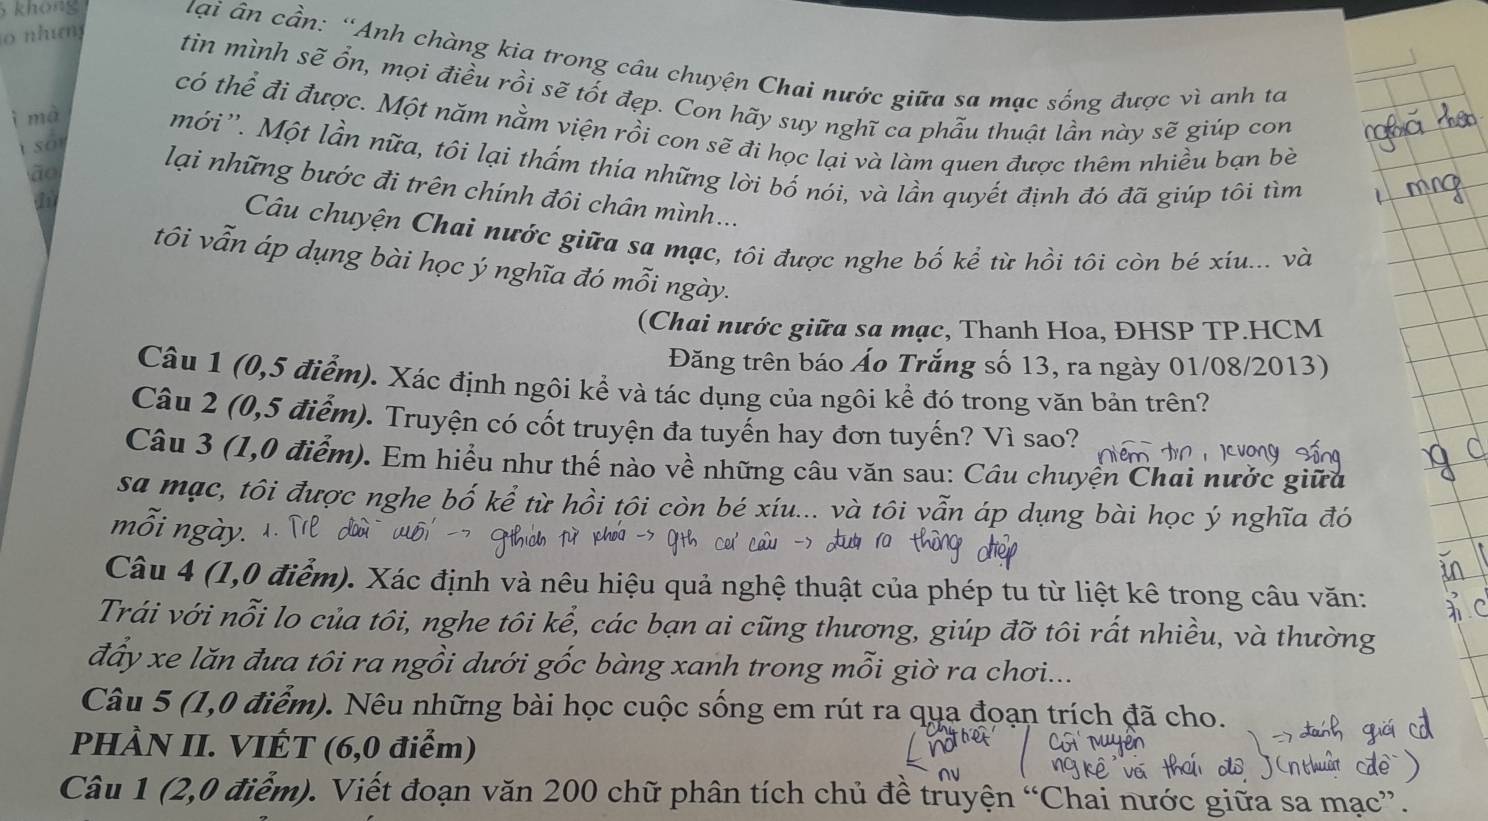 không
lại ân cần: “Anh chàng kia trong câu chuyện Chai nước giữa sa mạc sống được vì anh ta
tin mình sẽ ổn, mọi điều rồi sẽ tốt đẹp. Con hãy suy nghĩ ca phẫu thuật lần này sẽ giúp con
có thể đi được. Một năm nằm viện rồi con sẽ đi học lại và làm quen được thêm nhiều bạn bè
mới”. Một lần nữa, tôi lại thấm thía những lời bố nói, và lần quyết định đó đã giúp tôi tìm
lại những bước đi trên chính đôi chân mình...
mng
Câu chuyện Chai nước giữa sa mạc, tôi được nghe bố kể từ hồi tôi còn bé xíu... và
tôi vẫn áp dụng bài học ý nghĩa đó mỗi ngày.
(Chai nước giữa sa mạc, Thanh Hoa, ĐHSP TP.HCM
Đăng trên báo Áo Trắng số 13, ra ngày 01/08/2013)
Câu 1 (0,5 điểm). Xác định ngôi kể và tác dụng của ngôi kể đó trong văn bản trên?
Câu 2 (0,5 điểm). Truyện có cốt truyện đa tuyến hay đơn tuyến? Vì sao?
niềm tin, sống
Câu 3 (1,0 điểm). Em hiểu như thế nào về những câu văn sau: Câu chuyện Chai nước giữa
sa mạc, tôi được nghe bố kể từ hồi tôi còn bé xíu... và tôi vẫn áp dụng bài học ý nghĩa đó
mỗi ngày. 1. -> gthích từ khóa -> gth câu -> đưa ra thông điệp
Câu 4 (1,0 điểm). Xác định và nêu hiệu quả nghệ thuật của phép tu từ liệt kê trong câu văn:
Trái với nỗi lo của tôi, nghe tôi kể, các bạn ai cũng thương, giúp đỡ tôi rất nhiều, và thường
đẩy xe lăn đưa tôi ra ngồi dưới gốc bàng xanh trong mỗi giờ ra chơi...
Câu 5 (1,0 điểm). Nêu những bài học cuộc sống em rút ra qua đoạn trích đã cho.
PHẦN II. VIẾT (6,0 điểm)
-> đánh giá cđ
nv ngkể và thái độ
Câu 1 (2,0 điểm). Viết đoạn văn 200 chữ phân tích chủ đề truyện “Chai nước giữa sa mạc”.